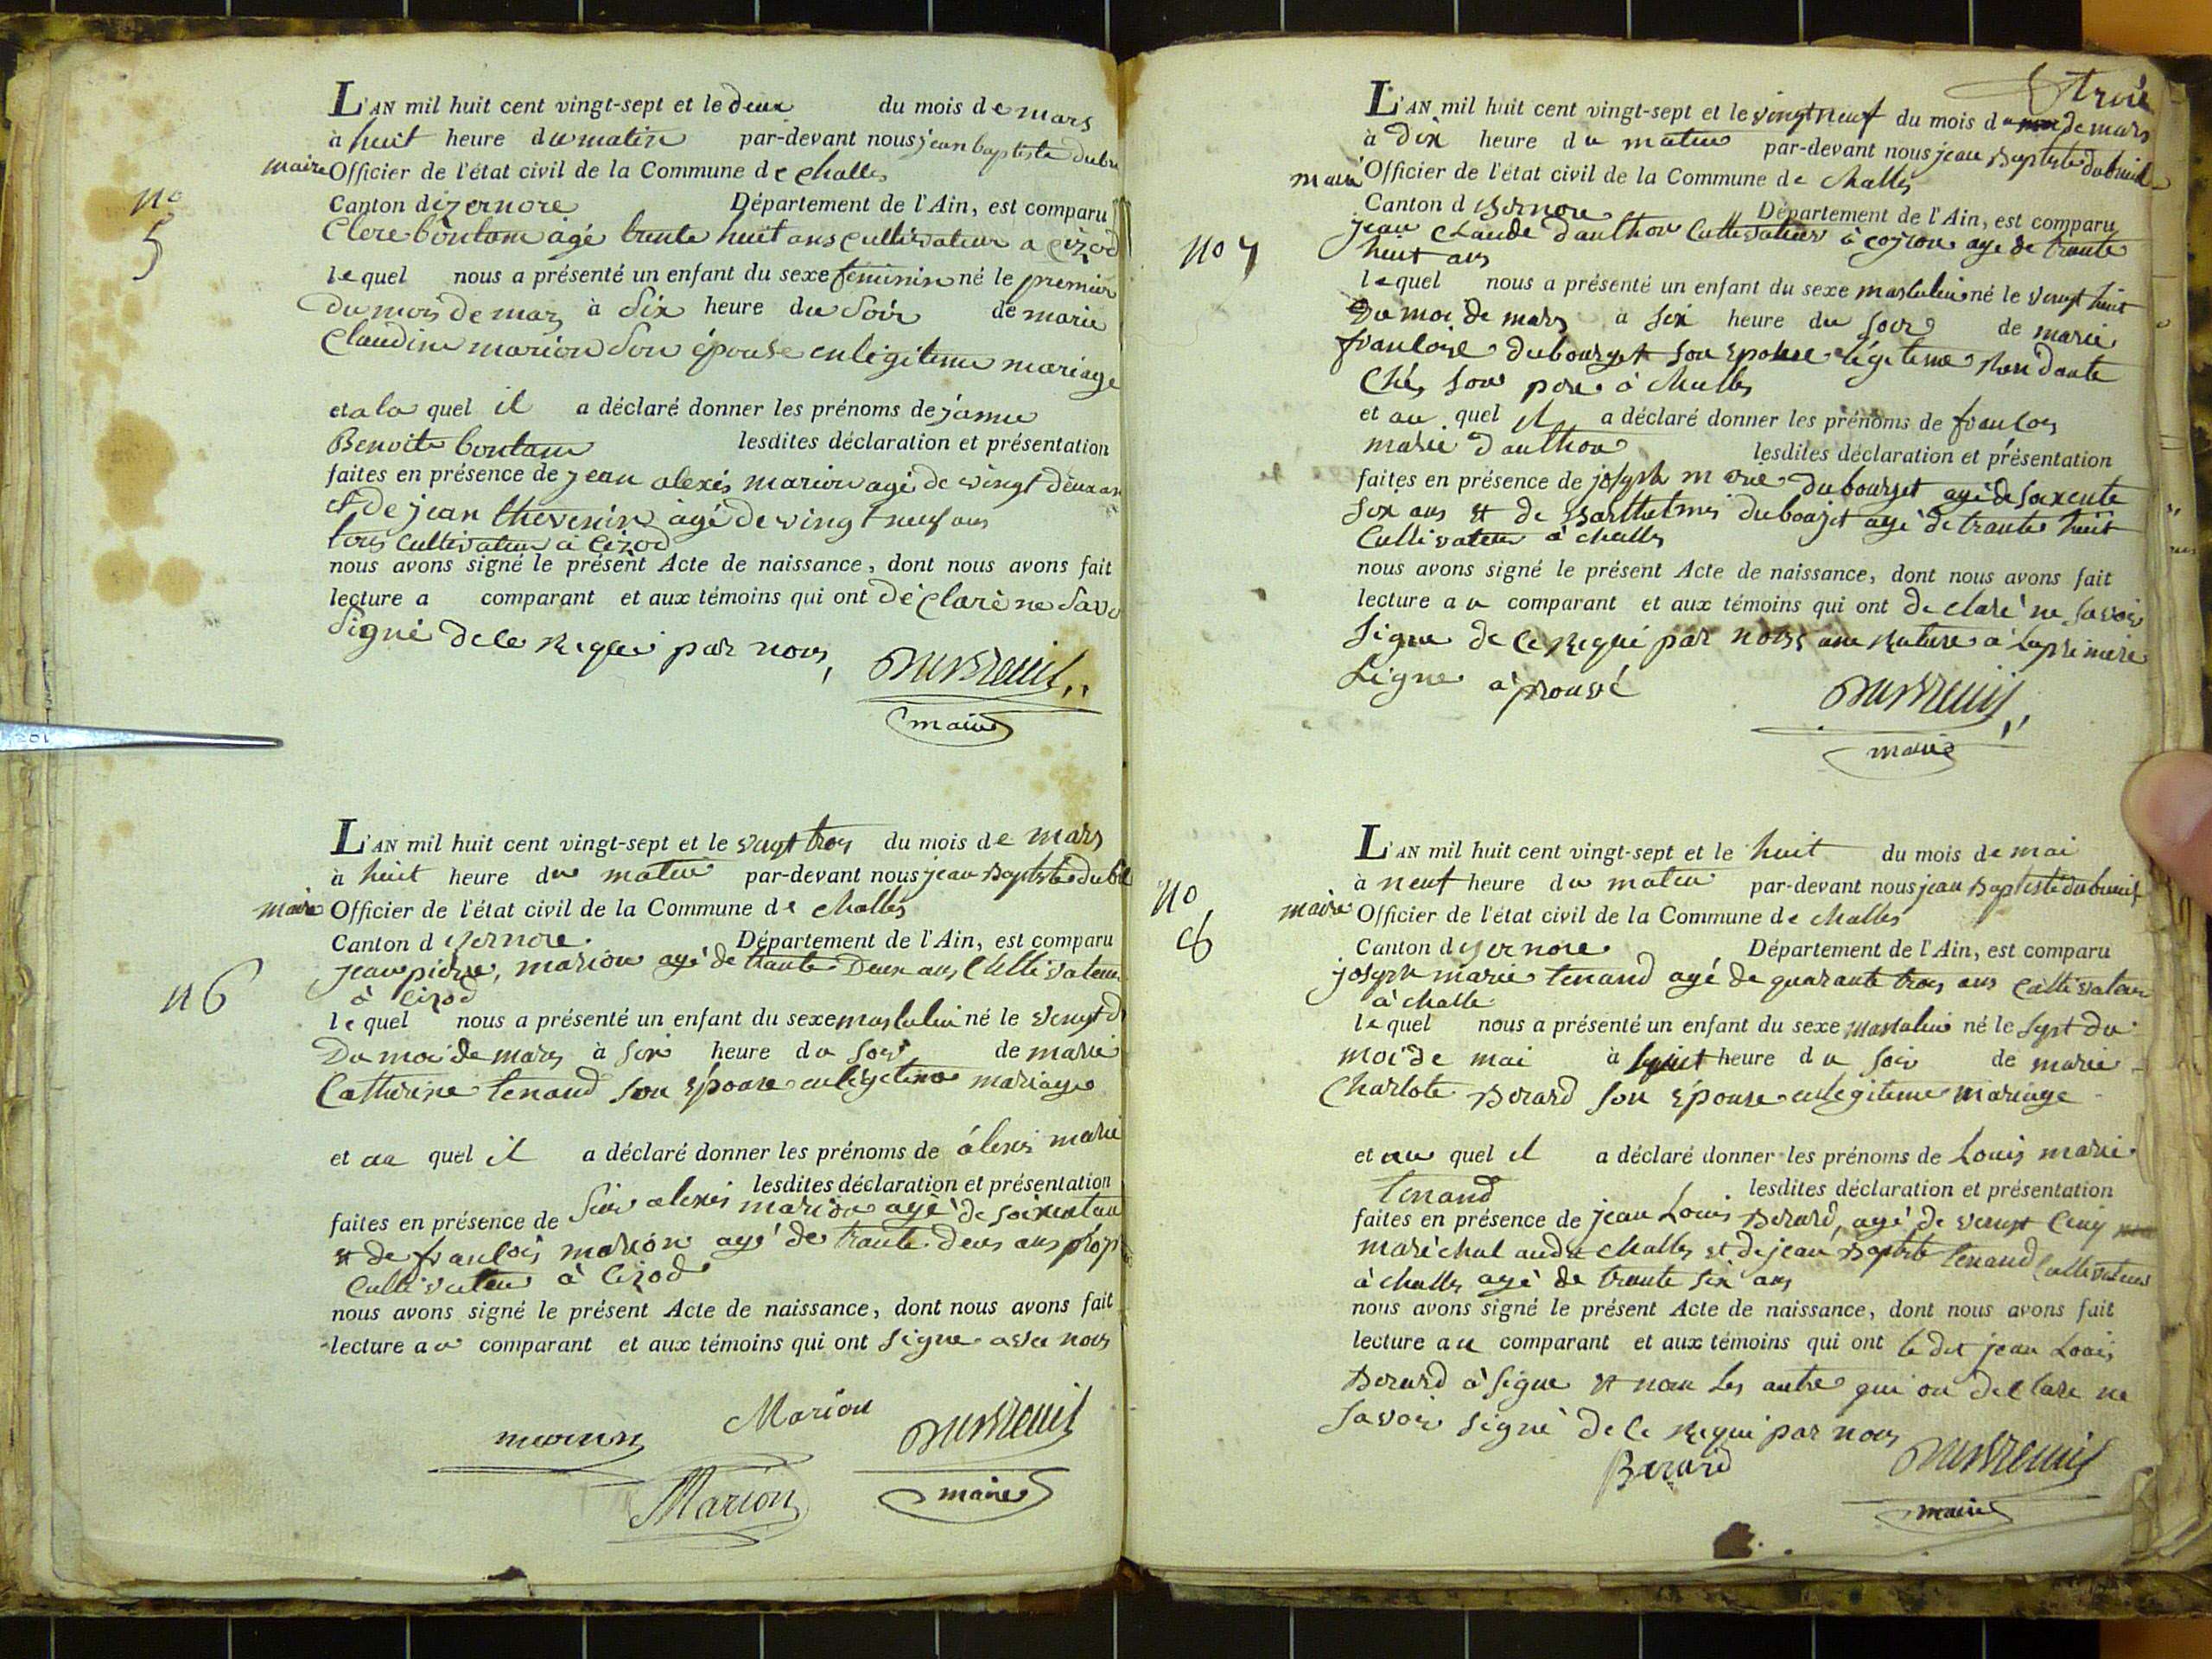 L'AN mil huit cent vingt-sept et le deux du mois de mars
à huit heure du matin par-devant nous jean baptiste dubr
maire Officier de l'état civil de la Commune de challes
no
5
Canton dizernore Département de l'Ain, est comparu
Clere bontam agé trente huit ans cultivateur a cizod
lequel nous a présenté un enfant du sexe feminin né le premier
du mois de mars à Six heure du Soir de marie
Claudine marion Son épouse en legitime mariage
et a la quel il a déclaré donner les prénoms de
Benoite bontam lesdites déclaration et présentation
faites en présence de jean alexis marion agé de vingt deux an
et de jean thevenin agé de vingt neuf ans
tous cultivateur a Cizod
nous avons signé le présent Acte de naissance, dont nous avons fait
lecture a comparant et aux témoins qui ont déclaré ne Savo
Signé de ce Requi par nous, Dubreuil
maire
L'AN mil huit cent vingt-sept et le vingt trois du mois de mars
à huit heure du matin par-devant nous jean Baptiste dub
maire Officier de l'état civil de la Commune de challes
Canton d izernore. Département de l'Ain, est comparu
n 6
jean pierre, marion agé de trante Deux ans Cultivateur
à Cizod
lequel nous a présenté un enfant du sexe masculin né le vingt d
Du moi de mars à six heure du soir de marie
Catherine tenand son épouse en legitime mariage
et au quel il a déclaré donner les prénoms de alexis marie
lesdites déclaration et présentation
faites en présence de alexis marion agé de
et de francois marion agé de trante deus ans prop
Cultivateur à Cizod
nous avons signé le présent Acte de naissance, dont nous avons fait
lecture au comparant et aux témoins qui ont signe avec nous
Marion
marion Dubreuil
Marion maire
L'AN mil huit cent vingt-sept et le vingt neuf du mois de mars
à Dix heure du matin par-devant nous jean Baptiste dubreuil
maire Officier de l'état civil de la Commune de challes
Canton d izernore Département de l'Ain, est comparu
no 7
jean Claude d'authon Cultivateur à agé de trante
huit ans
lequel nous a présenté un enfant du sexe masculin né le vingt huit
Du moi de mars à six heure du soir de marie
francoise dubourget son epouse légitime
Chés son pere à challes
et au quel il a déclaré donner les prénoms de francois
marie d'authon lesdites déclaration et présentation
faites en présence de joseph marie dubourget agé de soixente
six ans et de Barthelmis dubourget agé de trante huit
Cultivateur à challes
nous avons signé le présent Acte de naissance, dont nous avons fait
lecture au comparant et aux témoins qui ont declaré ne savoir
signe de ce Requi par nous une Rature à la premiere
Ligne aprouvé Dubreuil
maire
L'AN mil huit cent vingt-sept et le huit du mois de mai
à neuf heure du matin par-devant nous jean Baptiste dubreuil
no
8
maire Officier de l'état civil de la Commune de challes
Canton d izernore Département de l'Ain, est comparu
joseph marie tenand agé de quarante trois ans cultivateur
à challe
lequel nous a présenté un enfant du sexe masculin né le sept du
moi de mai à heure du soir de marie
Charlote Berard son épouse en legitime mariage
et au quel il a déclaré donner les prénoms de Louis marie
tenand lesdites déclaration et présentation
faites en présence de jean Louis Berard, agé de vingt Cinq
maréchal audit challes et de jean Baptiste tenand cultivateur
à challes agé de trante six ans
nous avons signé le présent Acte de naissance, dont nous avons fait
lecture au comparant et aux témoins qui ont le dit jean Louis
Berard à signe et non les autre qui on declare ne
savoir signé de ce Requi par nous
Berard Dubreuil
maire